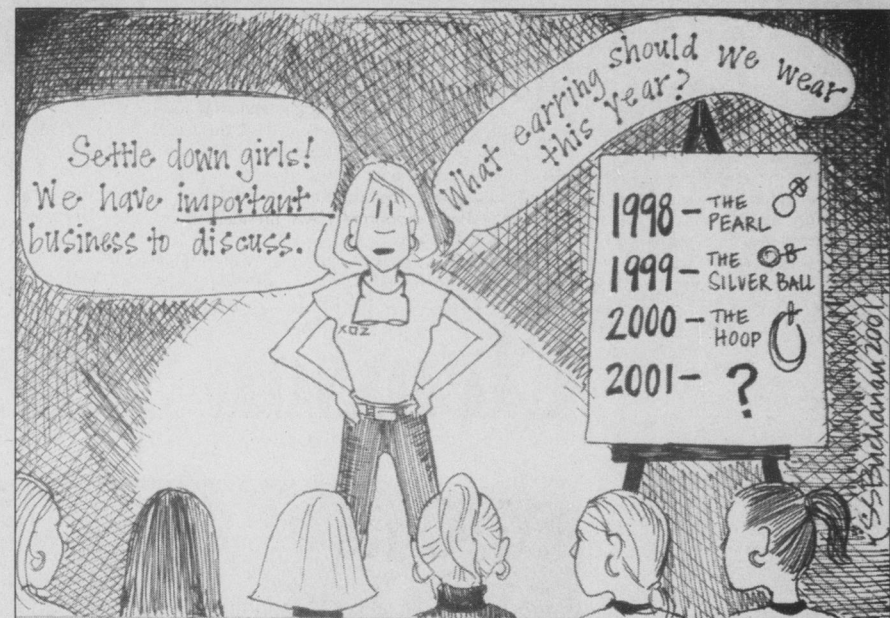 Settle down girls!
We have important
business to discuss.
What earring should we wear
this year?
ΧΩΖ
1998 - THE
PEARL
1999 - THE
SILVER BALL
2000 - THE
HOOP
2001 - ?